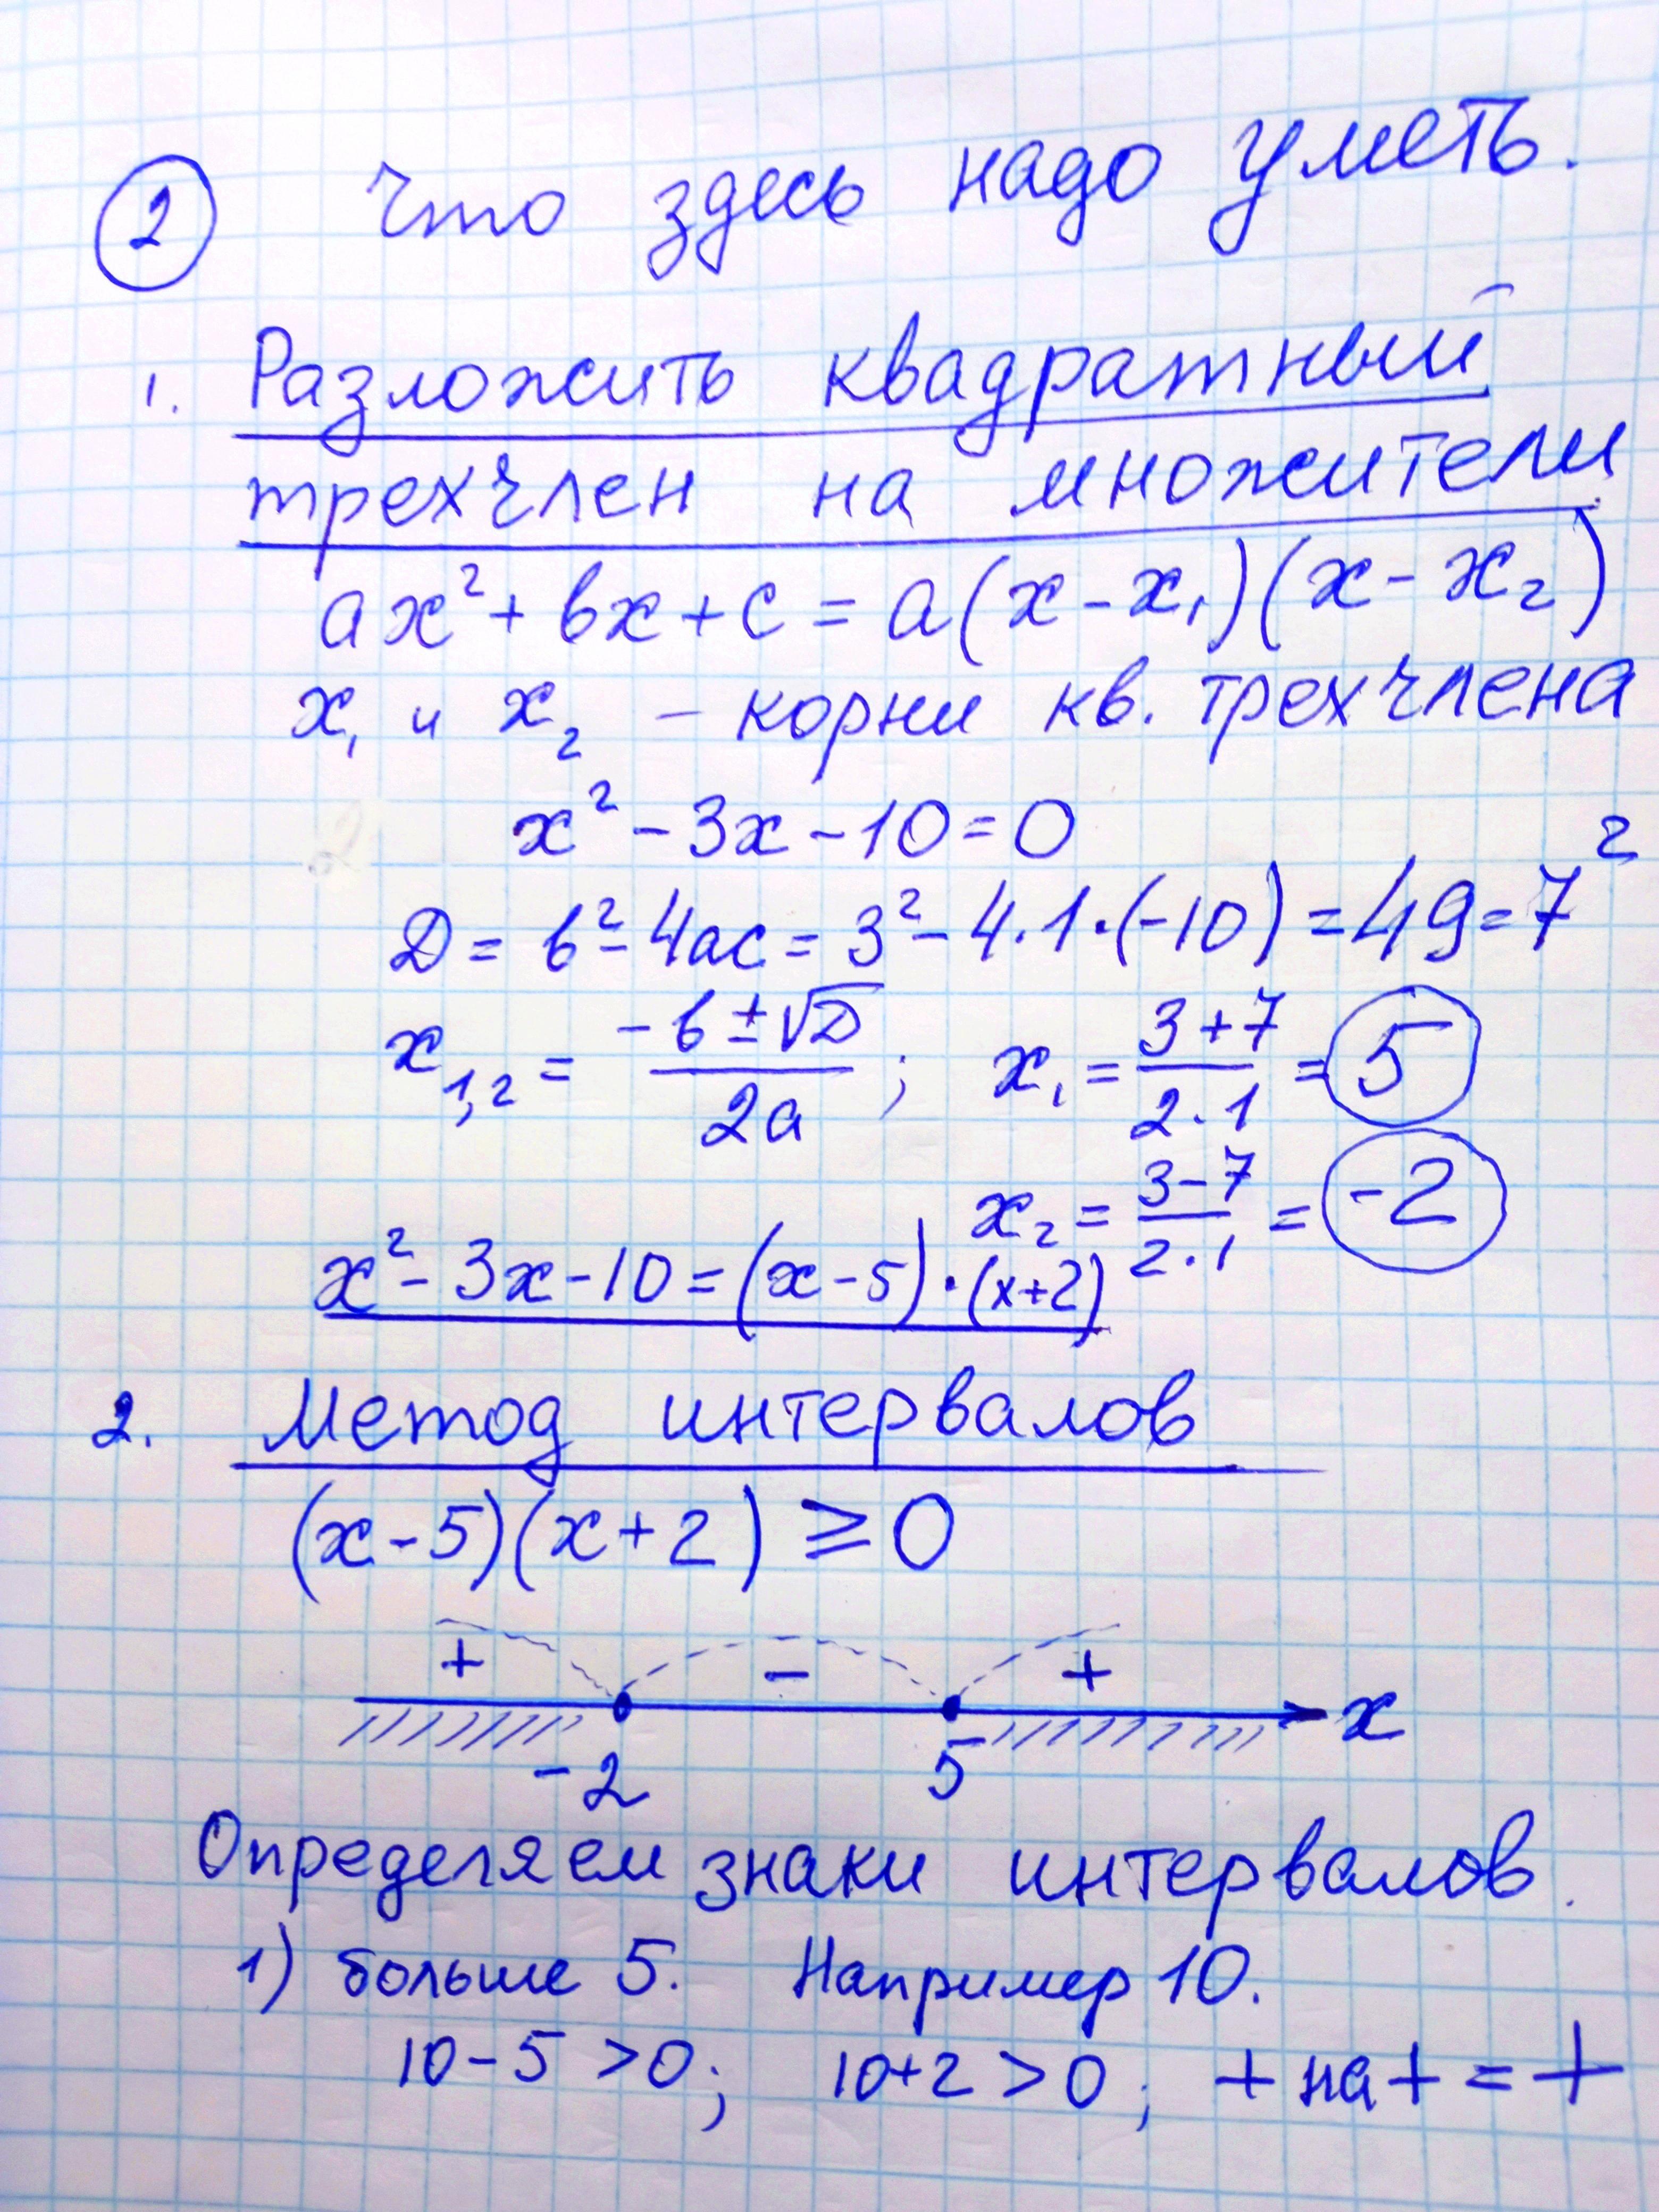 ② Что здесь надо уметь.
1. Разложить квадратный
трехчлен на множители
ax² + bx + c = a(x - x₁)(x - x₂)
x₁ и x₂ - корни кв. трехчлена
x² - 3x - 10 = 0
D = b² - 4ac = 3² - 4·1·(-10) = 49 = 7²
x₁,₂ = (-b ± √D)/(2a) ; x₁ = (3+7)/(2·1) = 5
x₂ = (3-7)/(2·1) = -2
x² - 3x - 10 = (x - 5)·(x+2)
2. Метод интервалов
(x - 5)(x + 2) ≥ 0
+ - +
x
-2 5
Определяем знаки интервалов.
1) больше 5. Например 10.
10 - 5 > 0; 10+2 > 0; + на + = +